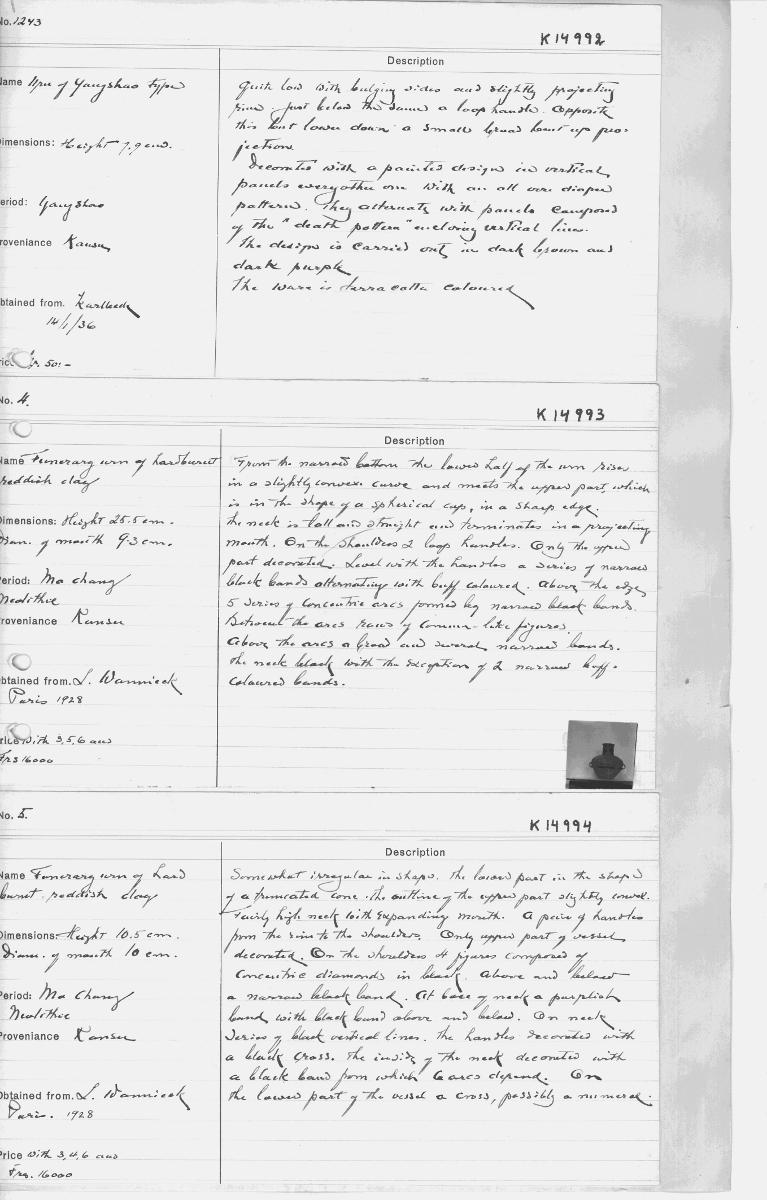 No. 1243
K 14992
Description
Name Urn of Yangshao type
Dimensions: Height 7.9 cm.
Period: Yangshao
Proveniance Kansu
Obtained from. Karlbeck
14/1/36
Price Kr. 50:-
Quite low with bulging sides and slightly projecting
rim. Just below the same a loop handle. Opposite
this but lower down a small broad bent up pro-
jection.
Decorated with a painted design in vertical
panels every other one with an all over diaper
pattern. They alternate with panels composed
of the "death pattern" enclosing vertical lines.
The design is carried out in dark brown and
dark purple
The ware is terracotta coloured
No. 4.
K 14993
Description
Name Funerary urn of hardburnt
reddish clay
Dimensions: Height 25.5 cm.
Diam. of mouth 9.3 cm.
Period: Ma chang
Neolithic
Proveniance Kansu
Obtained from. L. Wannieck
Paris 1928
Price with 3,5,6 and
Frs 16000
From the narrow bottom the lower half of the urn rises
in a slightly convex curve and meets the upper part, which
is in the shape of a spherical cup, in a sharp edge.
The neck is tall and straight and terminates in a projecting
mouth. On the shoulders 2 loop handles. Only the upper
part decorated. Level with the handles a series of narrow
black bands alternating with buff coloured. Above the edge
5 series of concentric arcs formed by narrow black bands.
Between the arcs rows of comma-like figures.
Above the arcs a broad and several narrow bands.
The neck black with the exception of 2 narrow buff-
coloured bands.
No. 5.
K 14994
Description
Name Funerary urn of hard
burnt reddish clay
Dimensions: Height 10.5 cm.
Diam. of mouth 10 cm.
Period: Ma Chang
Neolithic
Proveniance Kansu
Obtained from. L. Wannieck
Paris. 1928
Price with 3,4,6 and
Frs. 16000
Somewhat irregular in shape. The lower part in the shape
of a truncated cone. The outline of the upper part slightly convex.
Fairly high neck with expanding mouth. A pair of handles
from the rim to the shoulders. Only upper part of vessel
decorated. On the shoulders 4 figures composed of
concentric diamonds in black. Above and below
a narrow black band. At base of neck a purplish
band with black band above and below. On neck
series of black vertical lines. The handles decorated with
a black cross. The inside of the neck decorated with
a black band from which 6 arcs depend. On
the lower part of the vessel a cross, possibly a numeral.